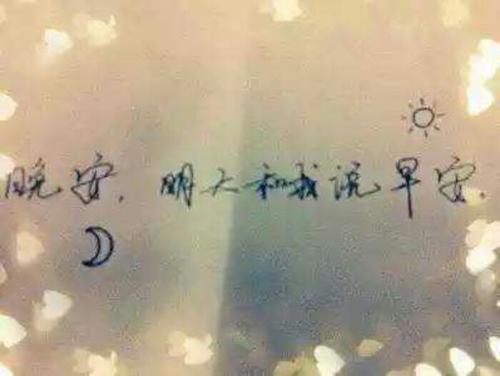 晚安.明天和我说早安.